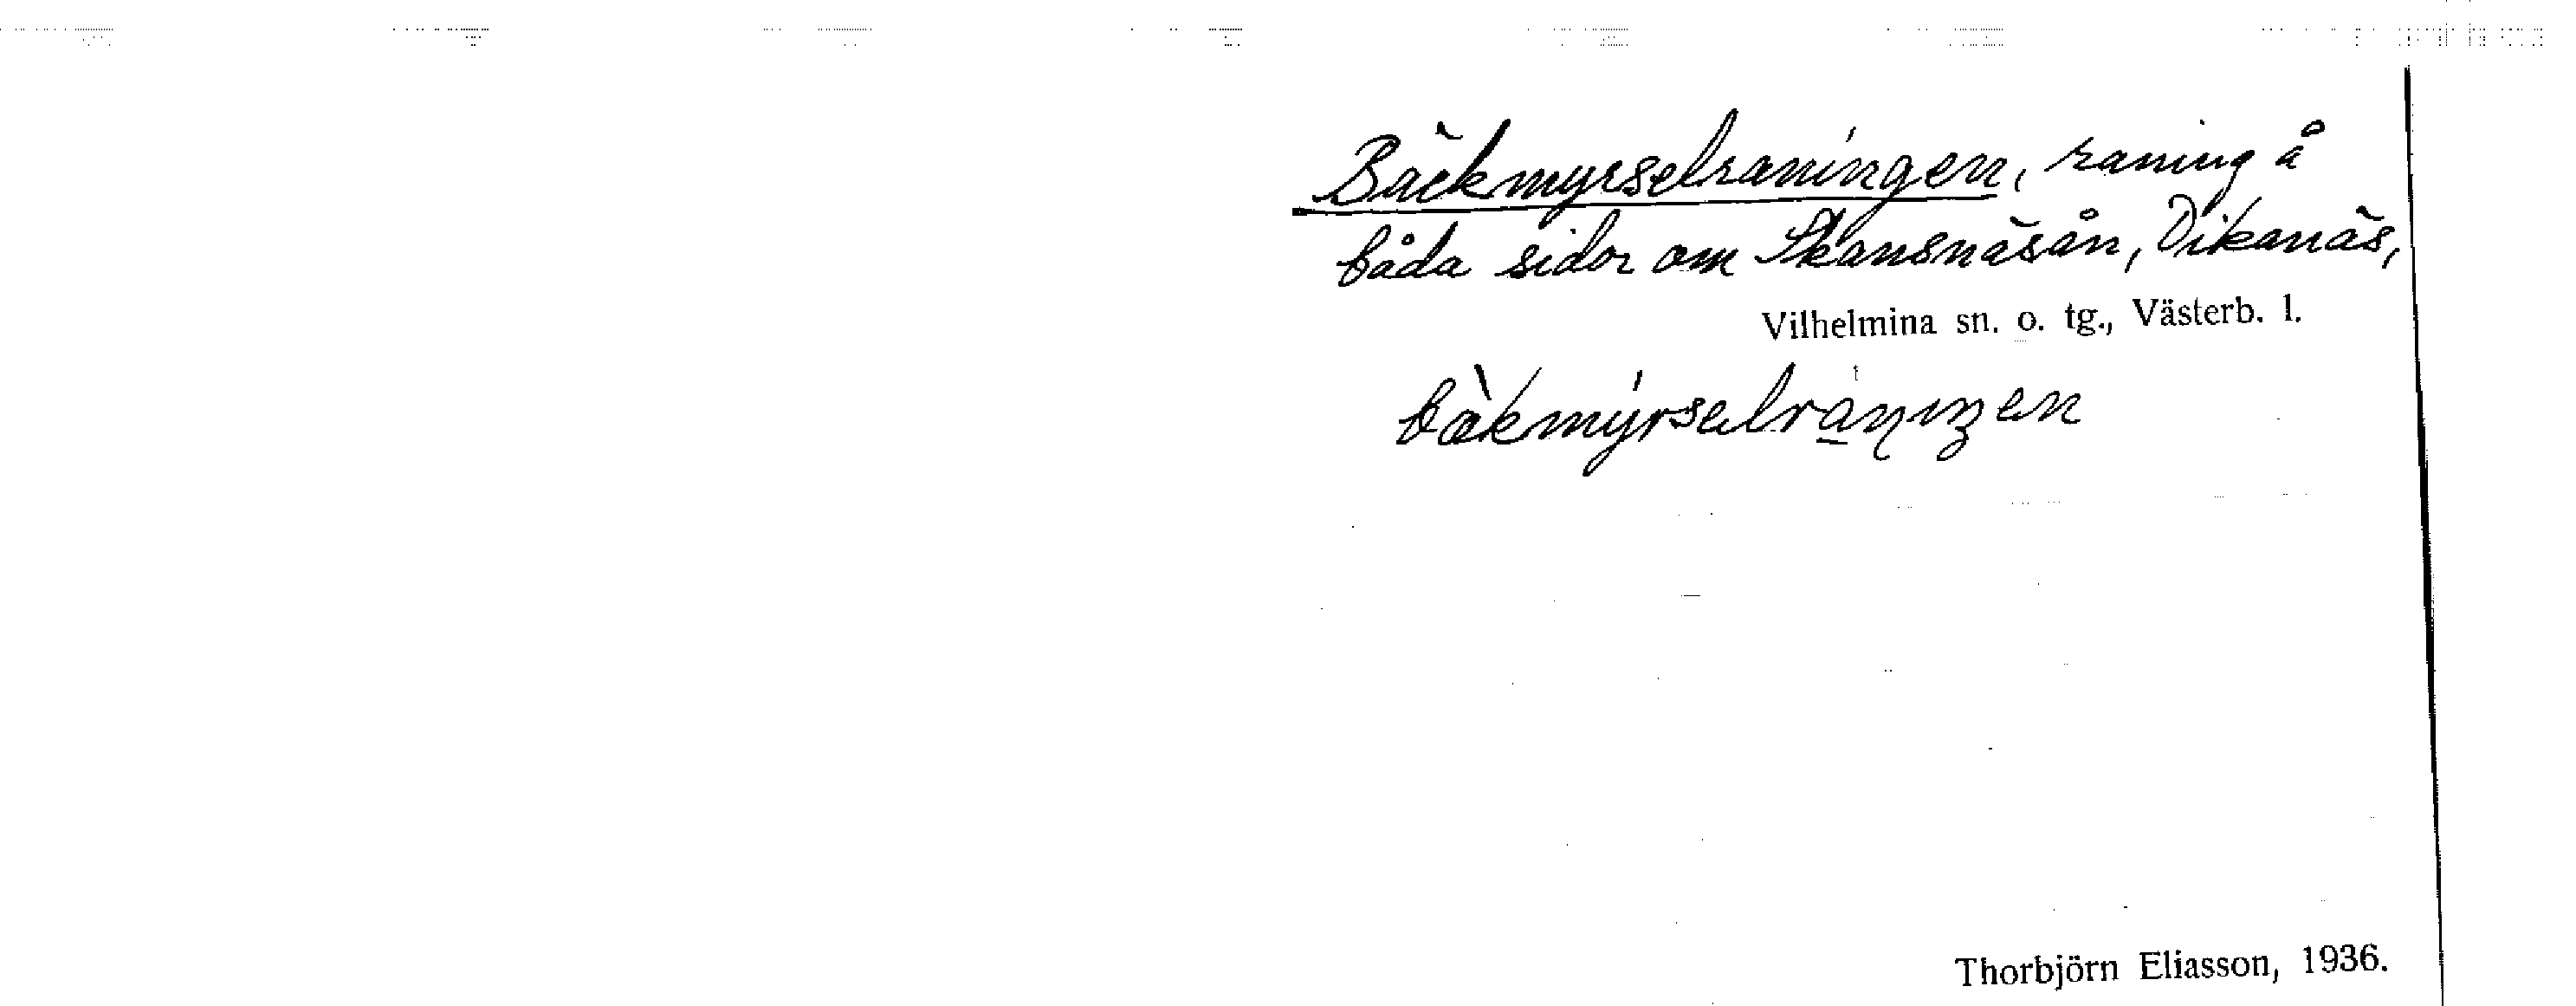 Bäckmyrselraningen, raning å
båda sidor om Skansnäsån, Dikanäs,
Vilhelmina sn. o. tg., Västerb. l.
bæ̀kmýrselrànıŋen
Thorbjörn Eliasson, 1936.